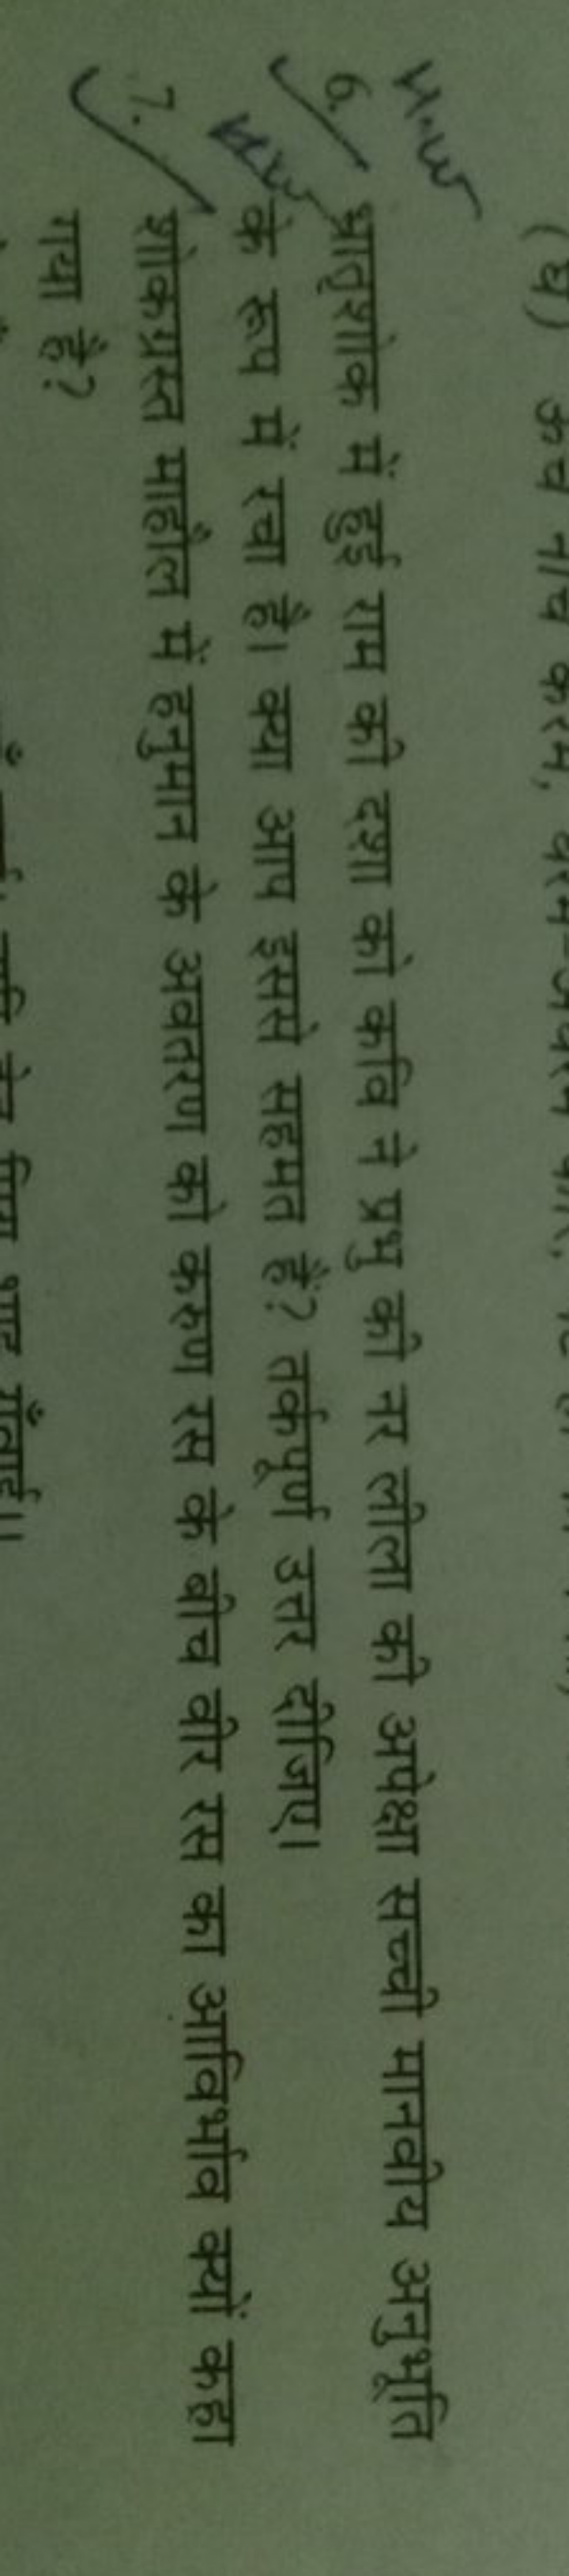 (घ) ऊँचे नीचे करम, धरम-अधरम
H.W
6. भ्रातृशोक में हुई राम की दशा को कवि ने प्रभु की नर लीला की अपेक्षा सच्ची मानवीय अनुभूति
के रूप में रचा है। क्या आप इससे सहमत हैं? तर्कपूर्ण उत्तर दीजिए।
H.W
7. शोकग्रस्त माहौल में हनुमान के अवतरण को करुण रस के बीच वीर रस का आविर्भाव क्यों कहा
गया है?